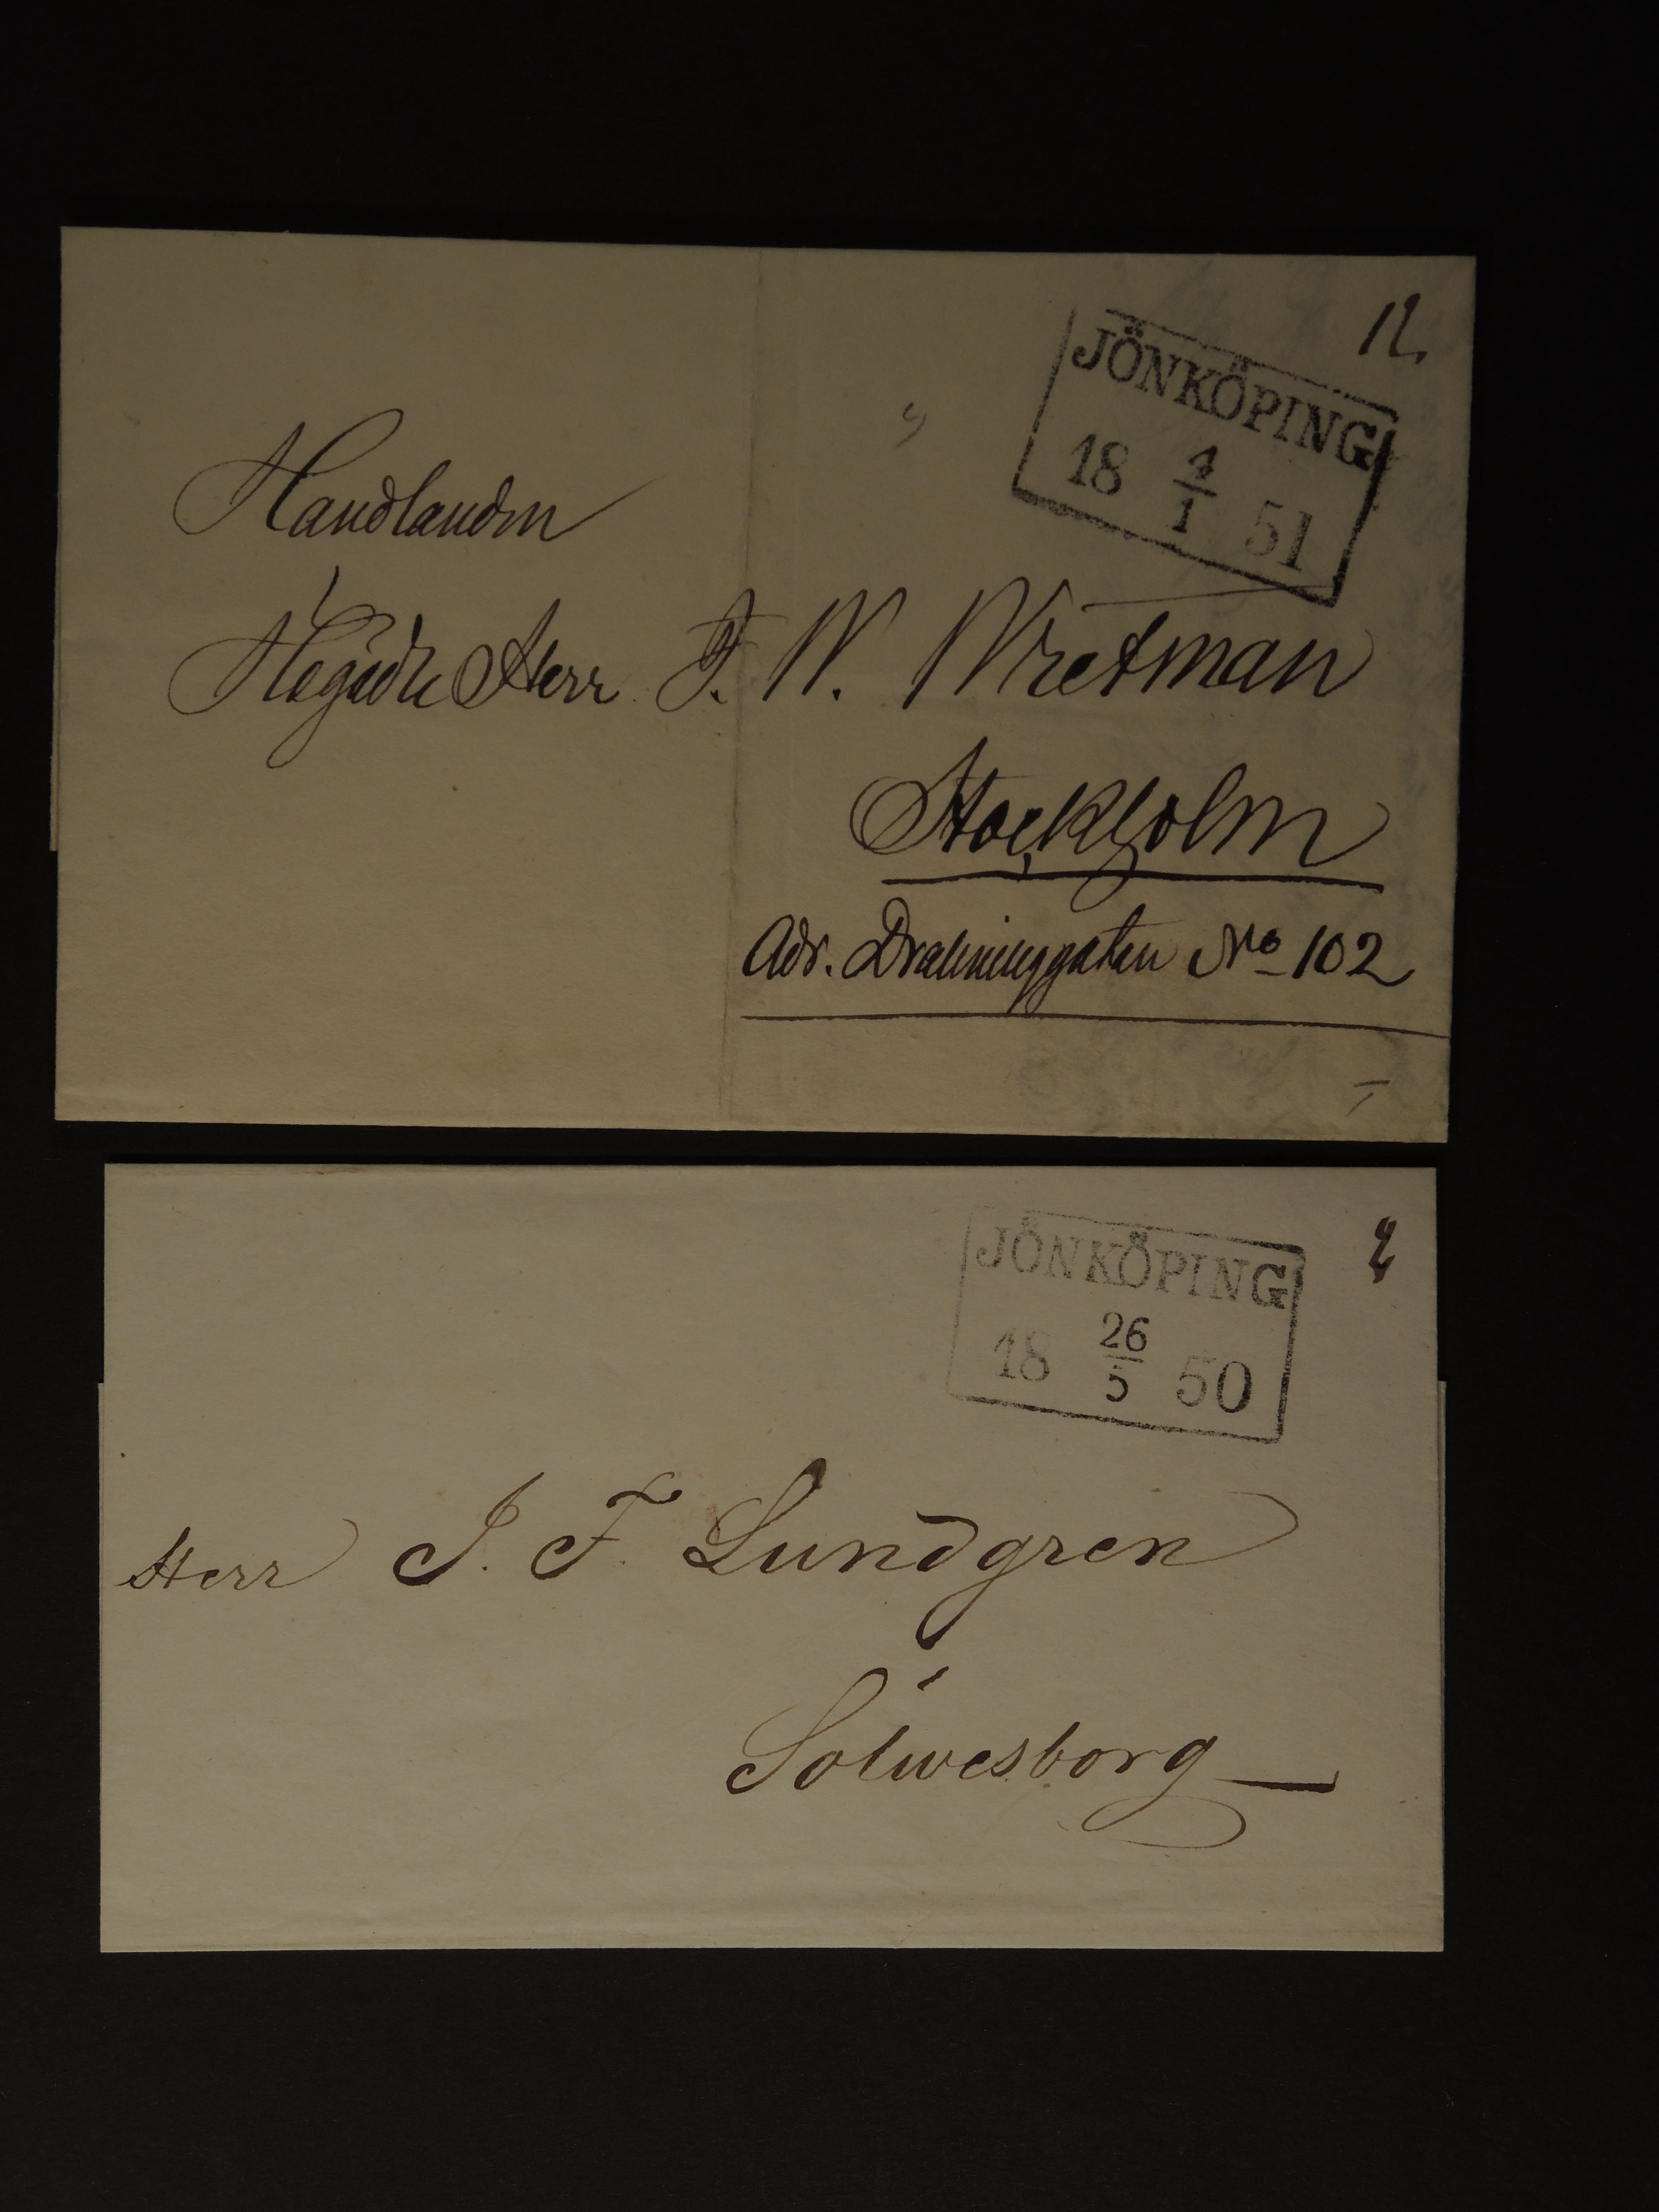 12
JÖNKÖPING
18 4/1 51
Handlanden
Herr F. W. Wretman
Stockholm
Adr. Drottninggatan No 102
JÖNKÖPING
18 26/5 50
Herr J. F. Lundgren
Sölwesborg